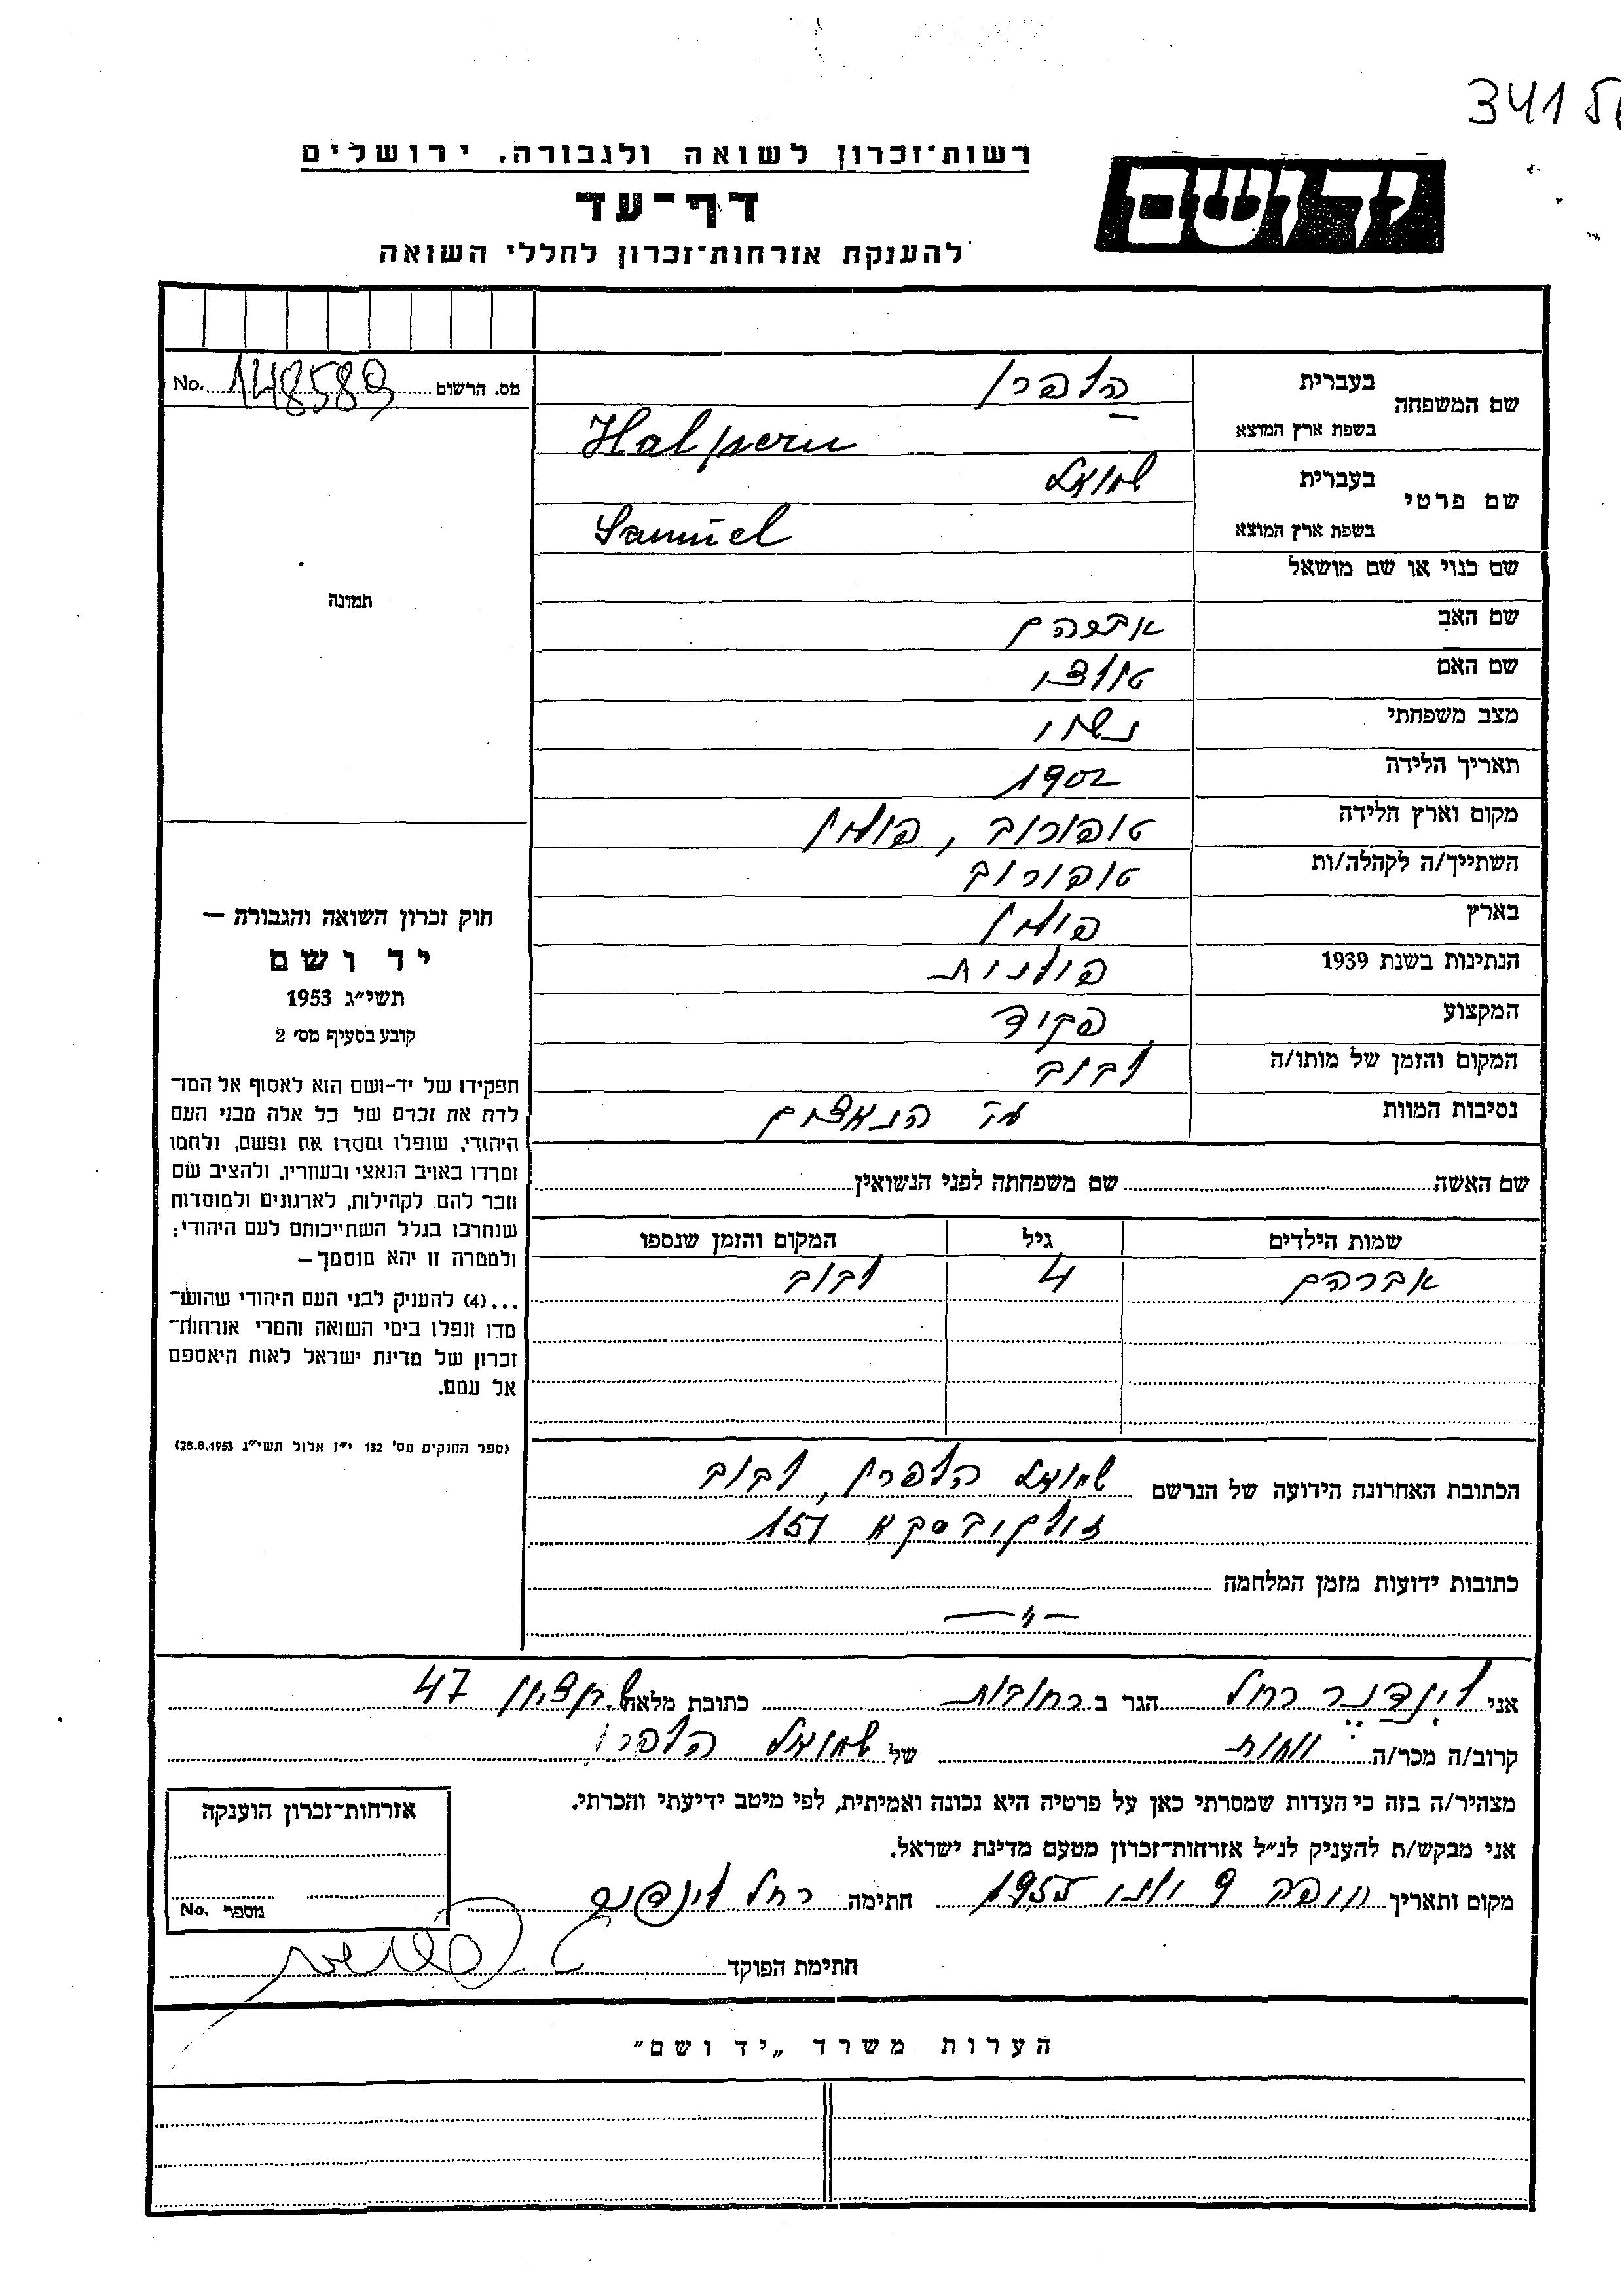 341
רשות־זכרון לשואה ולגבורה, ירושלים
יד ושם
דף־עד
להענקת אזרחות־זכרון לחללי השואה
מס. הרשום 148589 No.
שם המשפחה
בעברית הלפרן
בשפת ארץ המוצא Halpern
שם פרטי
בעברית שמואל
בשפת ארץ המוצא Samuel
שם כנוי או שם מושאל
שם האב אברהם
שם האם
מצב משפחתי נשוי
תאריך הלידה 1902
מקום וארץ הלידה טופורוב, פולין
השתייך/ה לקהלה/ות טופורוב
בארץ פולין
הנתינות בשנת 1939 פולנית
המקצוע פקיד
המקום והזמן של מותו/ה לבוב
נסיבות המוות הנאצים
תמונה
חוק זכרון השואה והגבורה —
יד ושם
תשי״ג 1953
קובע בסעיף מס׳ 2
תפקידו של יד-ושם הוא לאסוף אל המו־
לדת את זכרם של כל אלה מבני העם
היהודי, שנפלו ומסרו את נפשם, נלחמו
ומרדו באויב הנאצי ובעוזריו, ולהציב שם
וזכר להם, לקהילות, לארגונים ולמוסדות
שנחרבו בגלל השתייכותם לעם היהודי;
ולמטרה זו יהא מוסמך —
...(4) להעניק לבני העם היהודי שהוש־
מדו ונפלו בימי השואה והמרי אזרחות־
זכרון של מדינת ישראל לאות היאספם
אל עמם.
(ספר החוקים מס׳ 132 י״ז אלול תשי״ג 28.8.1953)
שם האשה שם משפחתה לפני הנשואין
שמות הילדים גיל המקום והזמן שנספו
אברהם 4 לבוב
הכתובת האחרונה הידועה של הנרשם שמואל הלפרן, לבוב
זולקיבסקא 157
כתובות ידועות מזמן המלחמה
— " —
אני לינדנר רחל הגר ב רחובות כתובת מלאה בן ציון 47
קרוב/ה מכר/ה של שמואל הלפרן
מצהיר/ה בזה כי העדות שמסרתי כאן על פרטיה היא נכונה ואמיתית, לפי מיטב ידיעתי והכרתי.
אני מבקש/ת להעניק לנ״ל אזרחות־זכרון מטעם מדינת ישראל.
מקום ותאריך חיפה 9 יולי חתימה רחל לינדנר
חתימת הפוקד
אזרחות־זכרון הוענקה
מספר No.
הערות משרד „יד ושם״